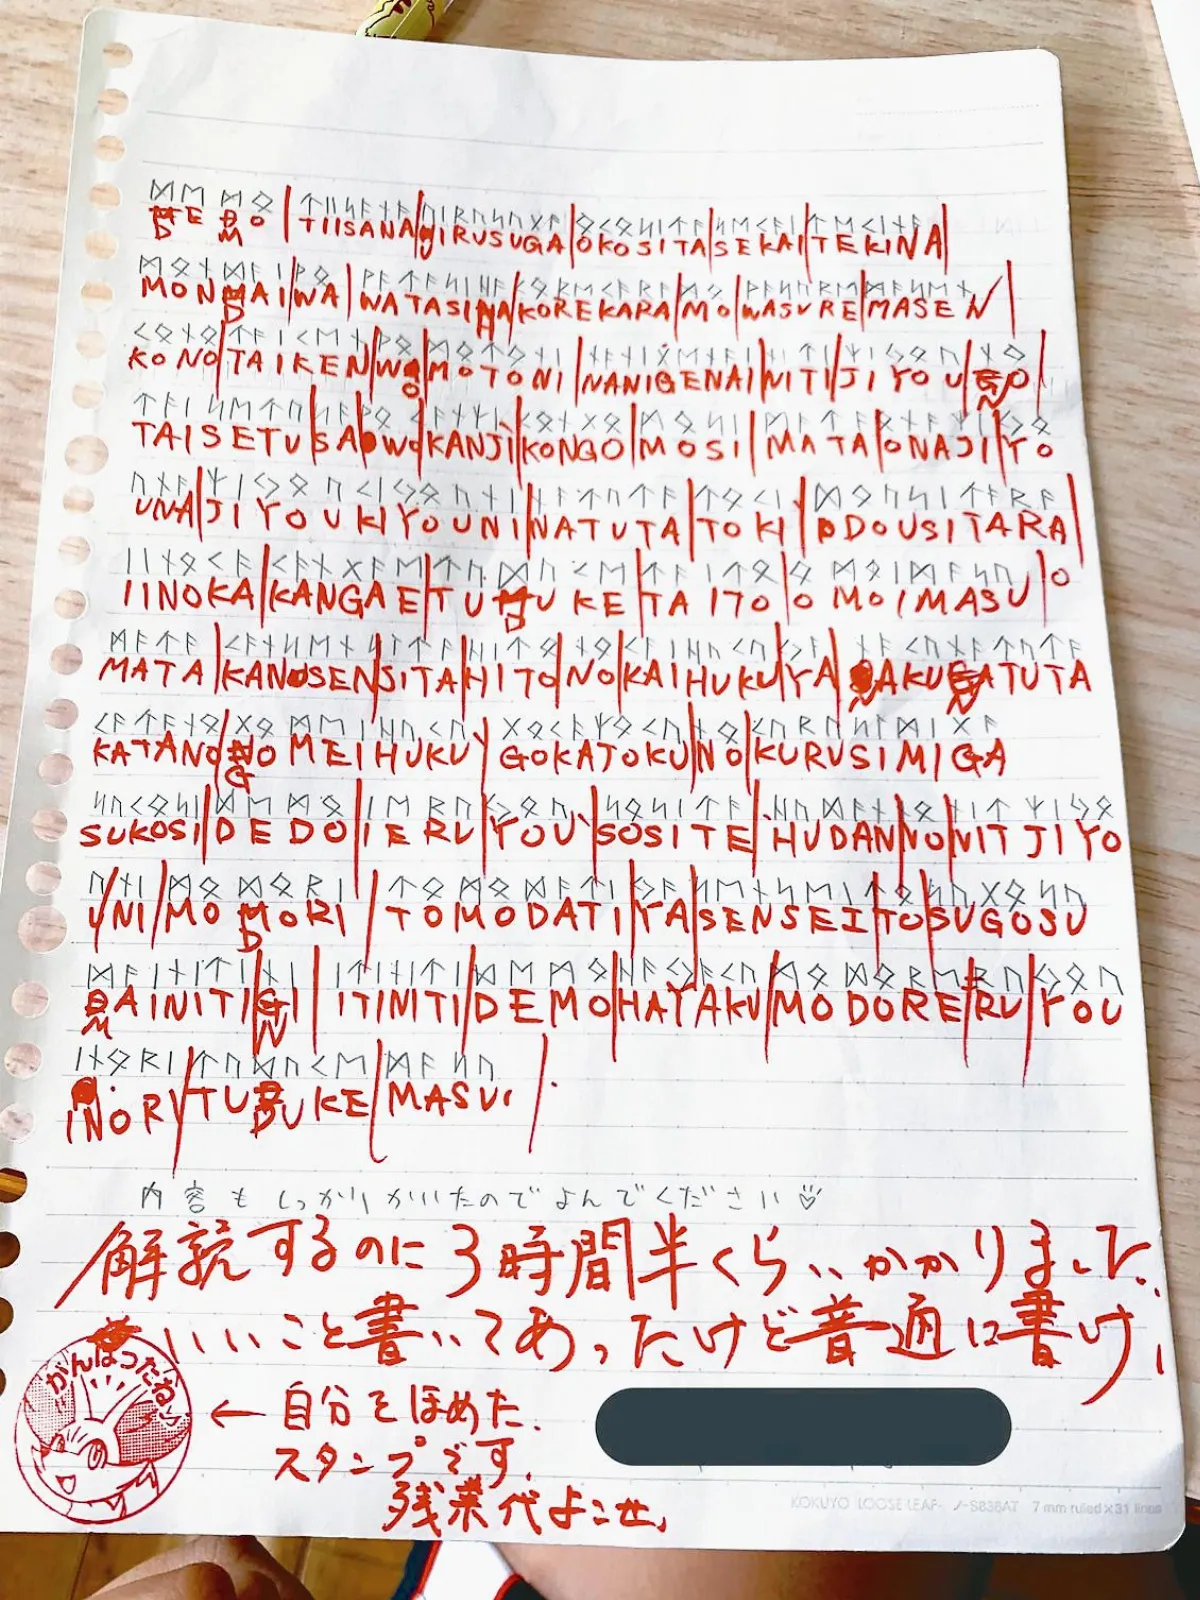 ᛞᛖᛗᛟ ᛏᛁᛁᛋᚨᚾᚨ ᚢᛁᚱᚢᛋᚢᚷᚨ ᛟᚲᛟᛋᛁᛏᚨ ᛋᛖᚲᚨᛁ ᛏᛖᚲᛁᚾᚨ
DEMO TIISANA UIRUSUGA OKOSITA SEKAI TEKINA
MONDAI WA WATASIHA KOREKARA MO WASURE MASEN
KONO TAIKEN WO MOTONI NANIGENAI NITI JIYOU NO
TAISETU SA WO KANJI KONGO MOSI MATA ONAJI YO
UNA JIYOUKIYOUNI NATUTA TOKI DOUSITARA
IINOKA KANGAE TUDUKETAITO OMOIMASU
MATA KANSEN SITA HITO NO KAIHUKU YA NAKUNATUTA
KATANO GO MEIHUKU GOKAJOKU NO KURUSIMIGA
SUKOSI DEDO IERU YOU SOSITE HUDAN NO NIT JIYO
UNI MODORI TOMODATI YA SENSEI TO SUGOSU
MAINITI NI ITINITI DEMO HAYAKU MODORERU YOU
INORI TUDUKE MASU.
内容もしっかりかいたのでよんでください♡
解読するのに3時間半くらいかかりました.
いいこと書いてあったけど普通に書け!
がんばったね
← 自分をほめた.
スタンプです.
残業代よこせ.
KOKUYO LOOSE-LEAF ノ-S836AT 7 mm ruled×31 lines